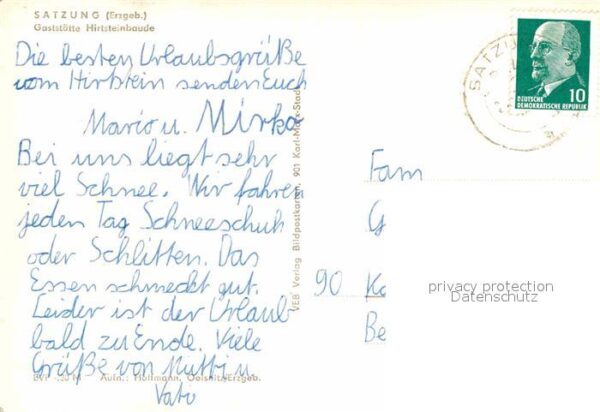 SATZUNG (Erzgeb.)
Gaststätte Hirtsteinbaude
Die besten Urlaubsgrüße
vom Hirtstein senden Euch
Mario u. Mirko
Bei uns liegt sehr
viel Schnee. Wir fahren
jeden Tag Schneeschuh
oder Schlitten. Das
Essen schmeckt gut.
Leider ist der Urlaub
bald zu Ende. Viele
Grüße von Mutti u.
Vati
Aufn.: Hoffmann, Oelsnitz/Erzgeb.
VEB Verlag Bildpostkarten, 901 Karl-Marx-Stadt
SATZUNG
10
DEUTSCHE
DEMOKRATISCHE REPUBLIK
Fam
G
90 Ka
Be
privacy protection
Datenschutz